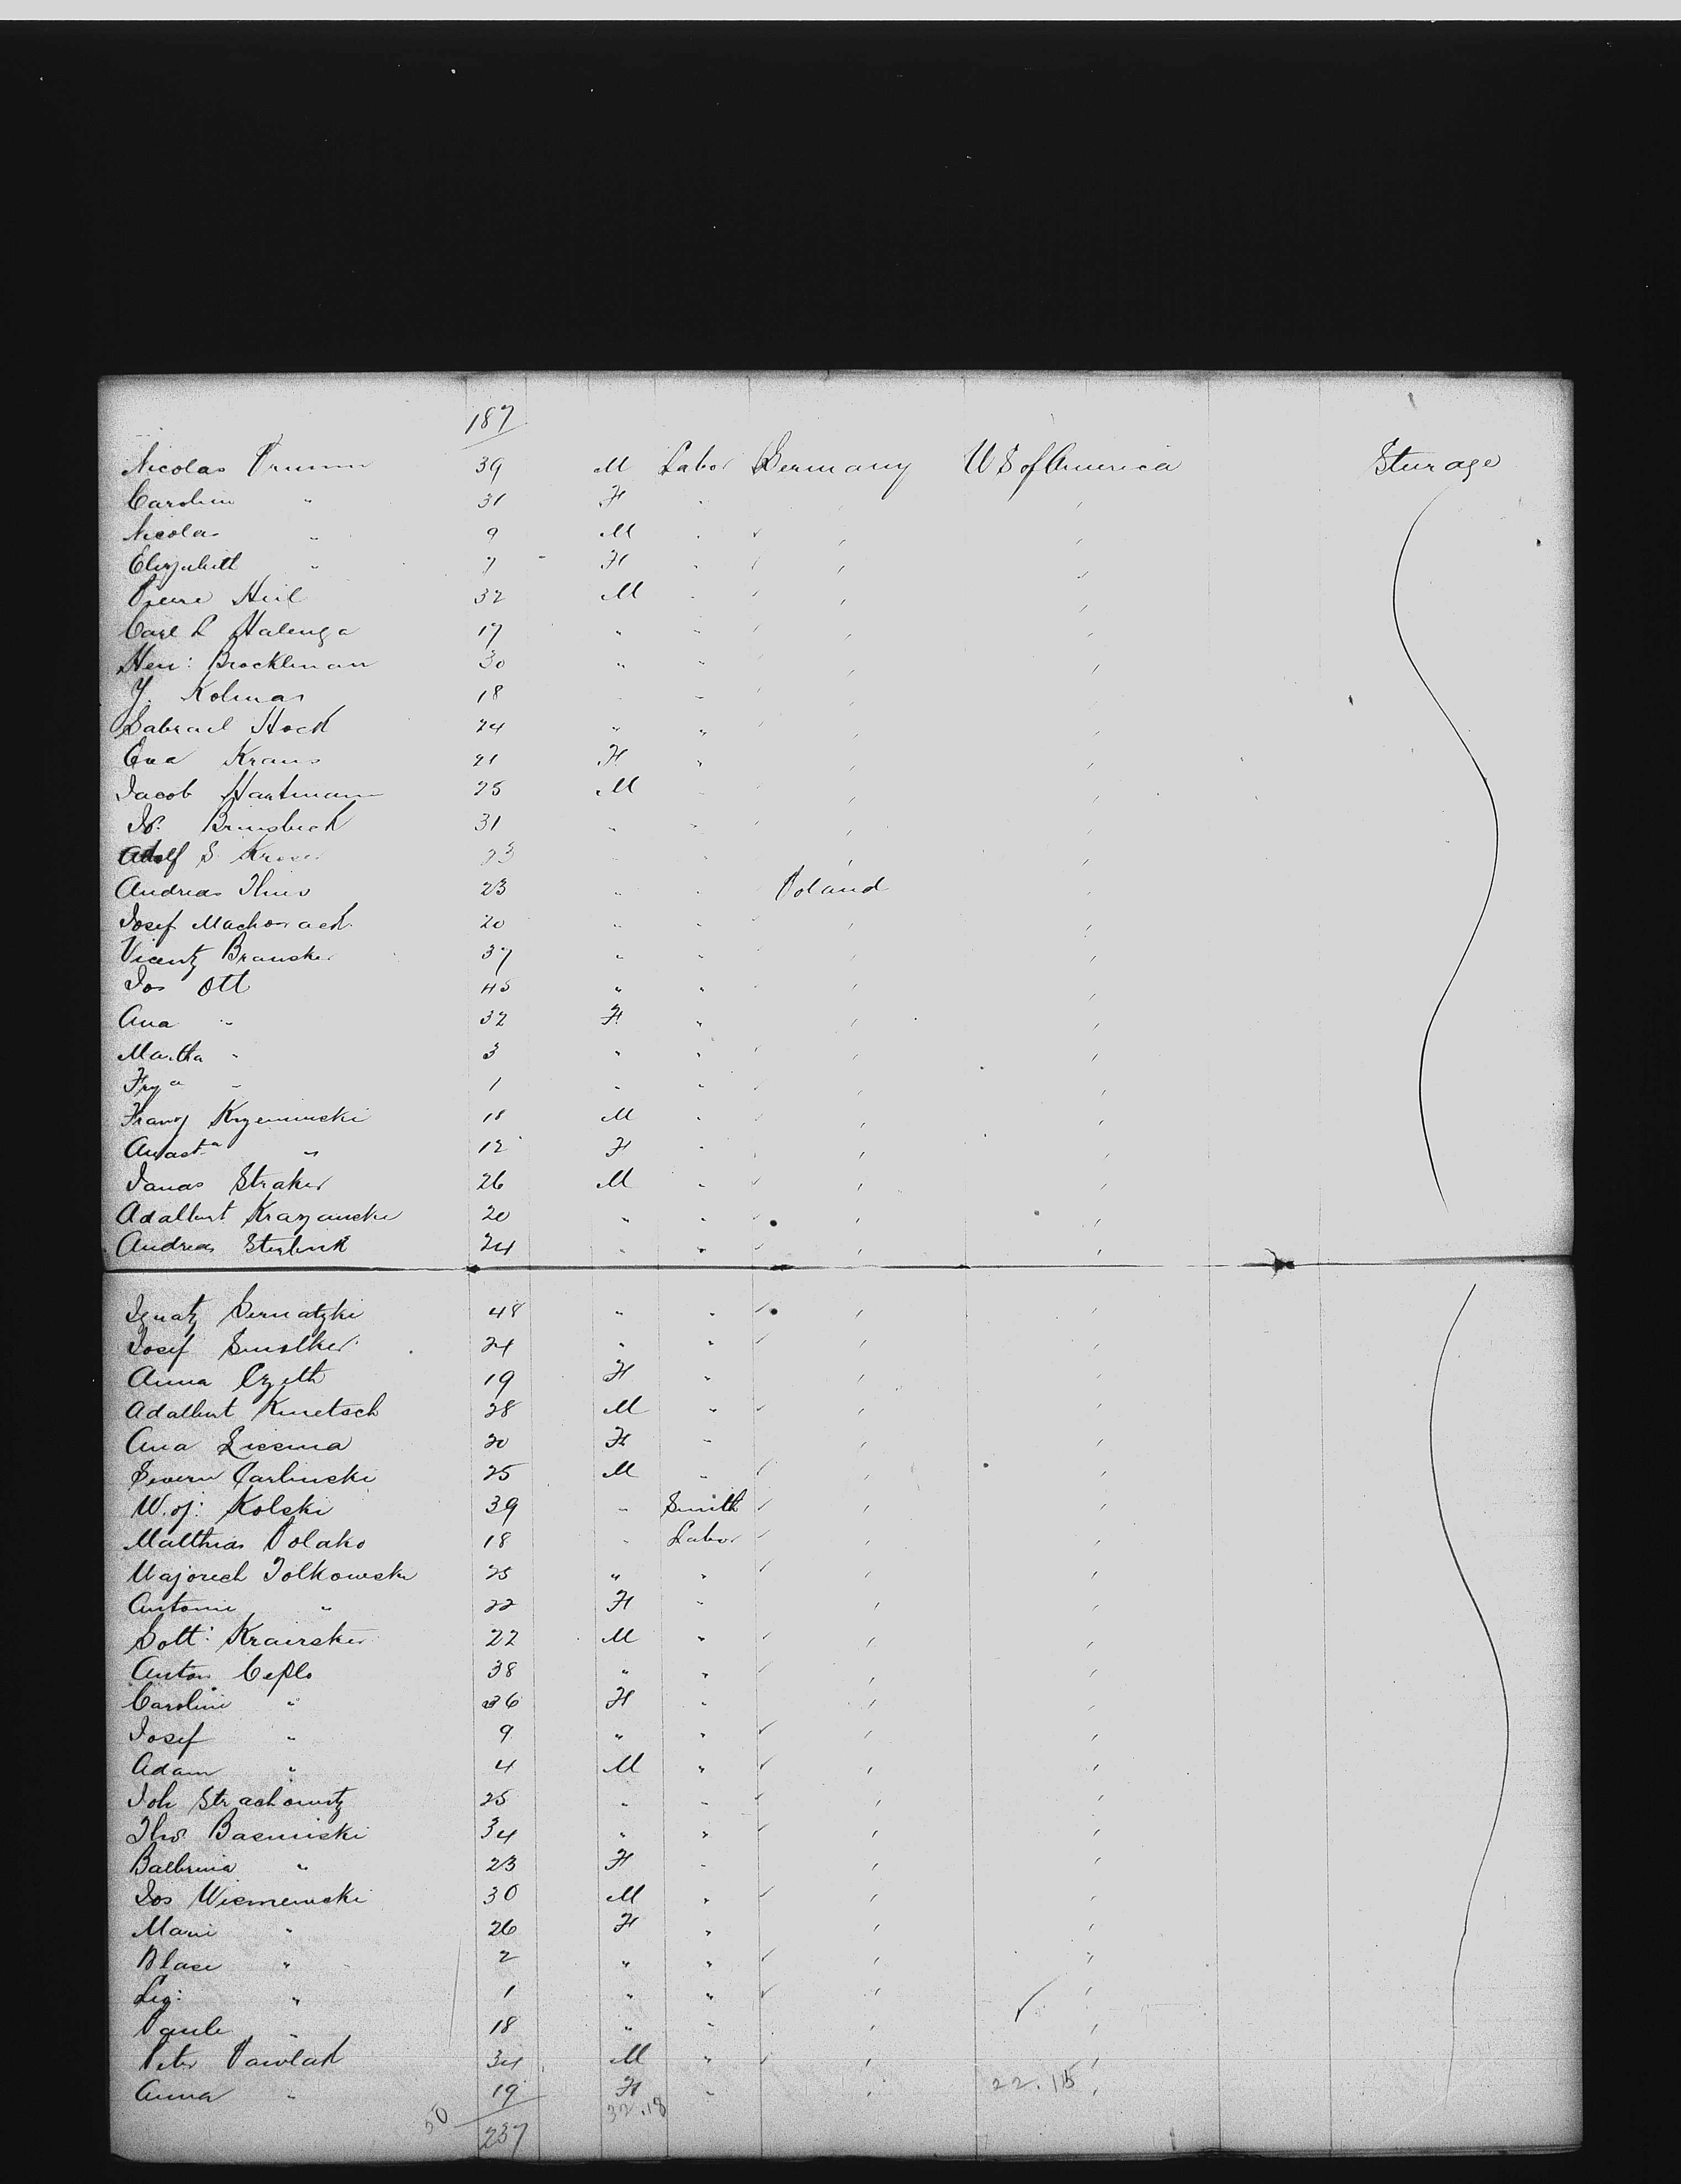 187
Nicolas Prumm 39 M Labor Germany U S of America Sturage
Carolin " 31 F "
Nicolas " 9 M "
Elizabeth " 7 F "
Pierre Heil 32 M "
Carl L Halenga 17 " "
Hen: Brockleman 30 " "
J. Kolmar 18 " "
Gabrael Hock 24 " "
Eva Kraus 21 F "
Jacob Hartmann 25 M "
Jos. 31 " "
Adolf S. 23 " "
Andreas 23 " " Poland
Josef 20 " "
Vicentz Bransker 37 " "
Jos Ott 45 " "
Ana " 32 F "
Martha " 3 " "
" 1 " "
Franz 18 M "
Anasta " 12 F "
Straker 26 M "
Adalbert 20 " "
Andreas 24 " "
Ignatz Gernatzki 48 " "
Josef Smolker 24 " "
Anna 19 F "
Adalbert Kmetsch 28 M "
Ana 20 F "
Severn Carlinski 25 M "
W. oj: Kolski 39 " Smith
Matthias Polako 18 " Labor
Majorech Tolkowski 25 " "
Antonie " 22 F "
Gott: Krairsker 22 M "
Anton Ceplo 38 " "
Carolini " 36 F "
Josef " 9 " "
Adam " 4 M "
Joh Strachowitz 25 " "
Thos Basmiski 34 " "
Balbrina " 23 F "
Jos Wiesmewski 30 M "
Marie " 26 F "
Blase " 2 " "
Leg: " 1 " "
Paule " 18 " "
Peter Pawlak 34 M "
Anna " 19 F " 22.15
50 237 32.18